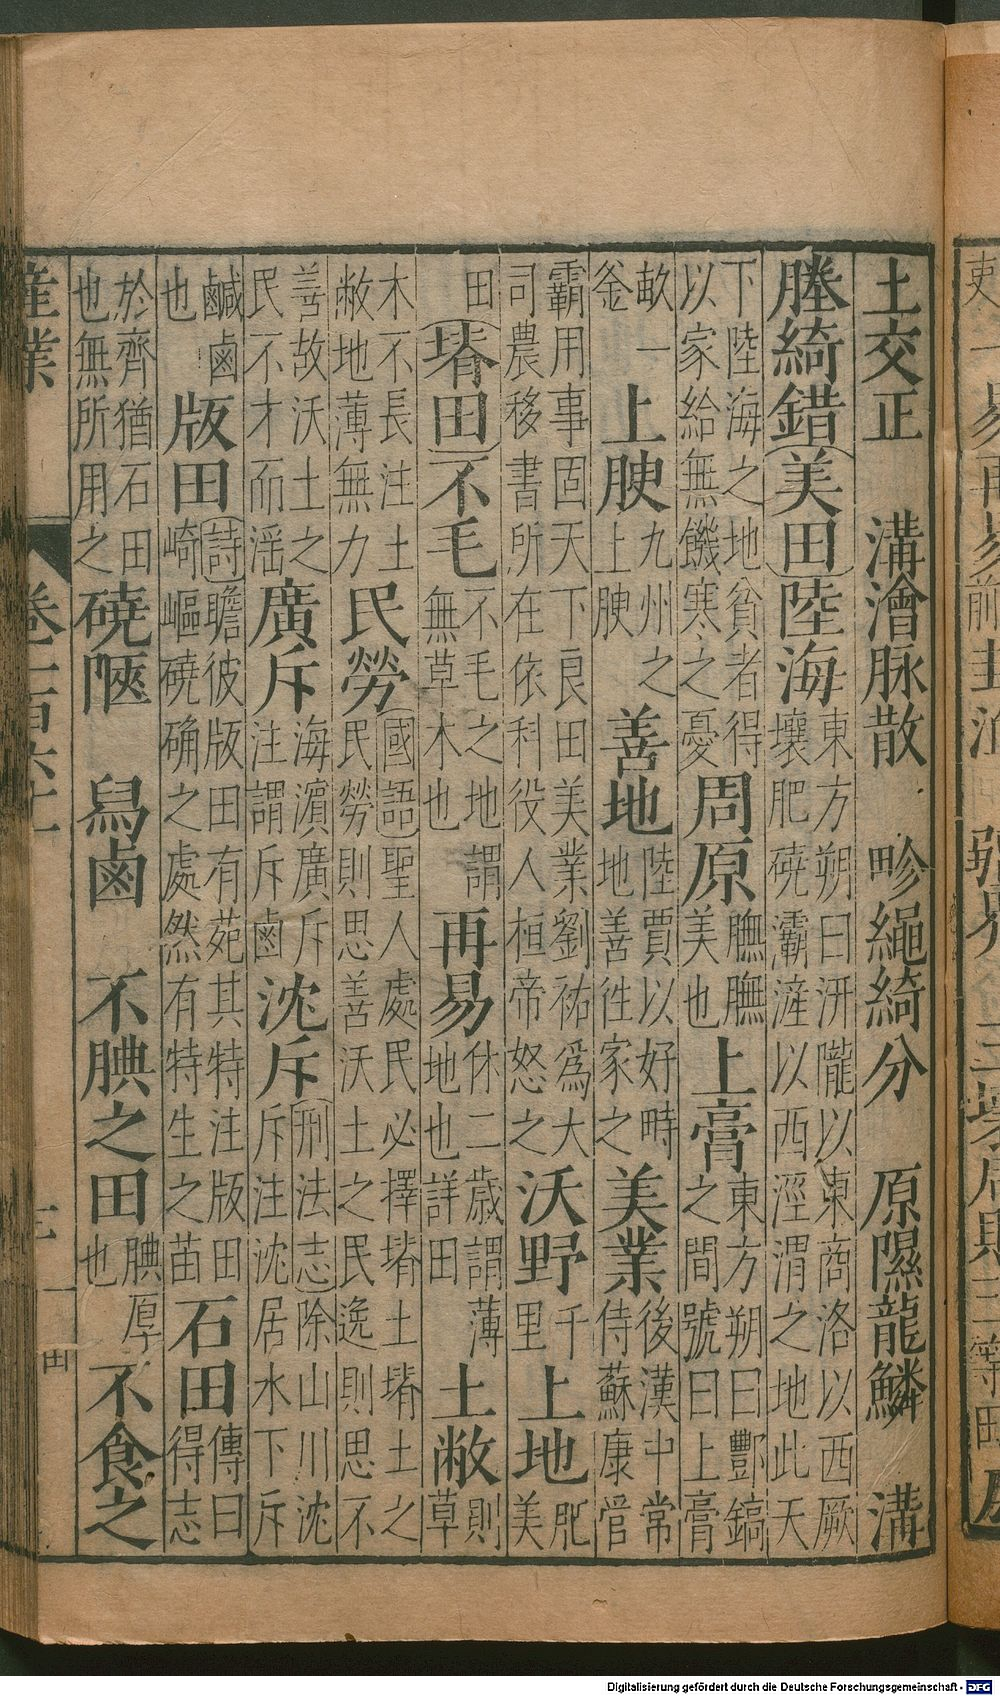 土交正　溝澮脉散　畛繩綺分　原隰龍鱗　溝
塍綺錯美田陸海東方朔曰汧隴以東商洛以西厥壤肥磽灞滻以西涇渭之地此天
下陸海之地貧者得以家給無饑寒之憂周原膴膴美也上膏東方朔曰酆鎬之間號曰上膏
畝一釜上腴九州之上腴善地陸賈以好畤地善徃家之美業後漢中常侍蘇康管
霸用事固天下良田美業劉祐爲大司農移書所在依科役人桓帝怒之沃野千里上地肥美
田塉田不毛不毛之地謂無草木也再易休二歲謂薄地也詳田土敝則草
木不長注土敝地薄無力民勞國語聖人處民必擇塉土塉土之民勞則思善沃土之民逸則思不
善故沃土之民不才而滛廣斥海濱廣斥注謂斥鹵沈斥刑法志除山川沈斥注沈居水下斥
鹹鹵也版田詩瞻彼版田有菀其特注版田崎嶇磽确之處然有特生之苗石田傳曰得志
於齊猶石田也無所用之磽陿　舄鹵　不腆之田腆厚也不食之
產業　卷一百六十一　三　田
Digitalisierung gefördert durch die Deutsche Forschungsgemeinschaft - DFG